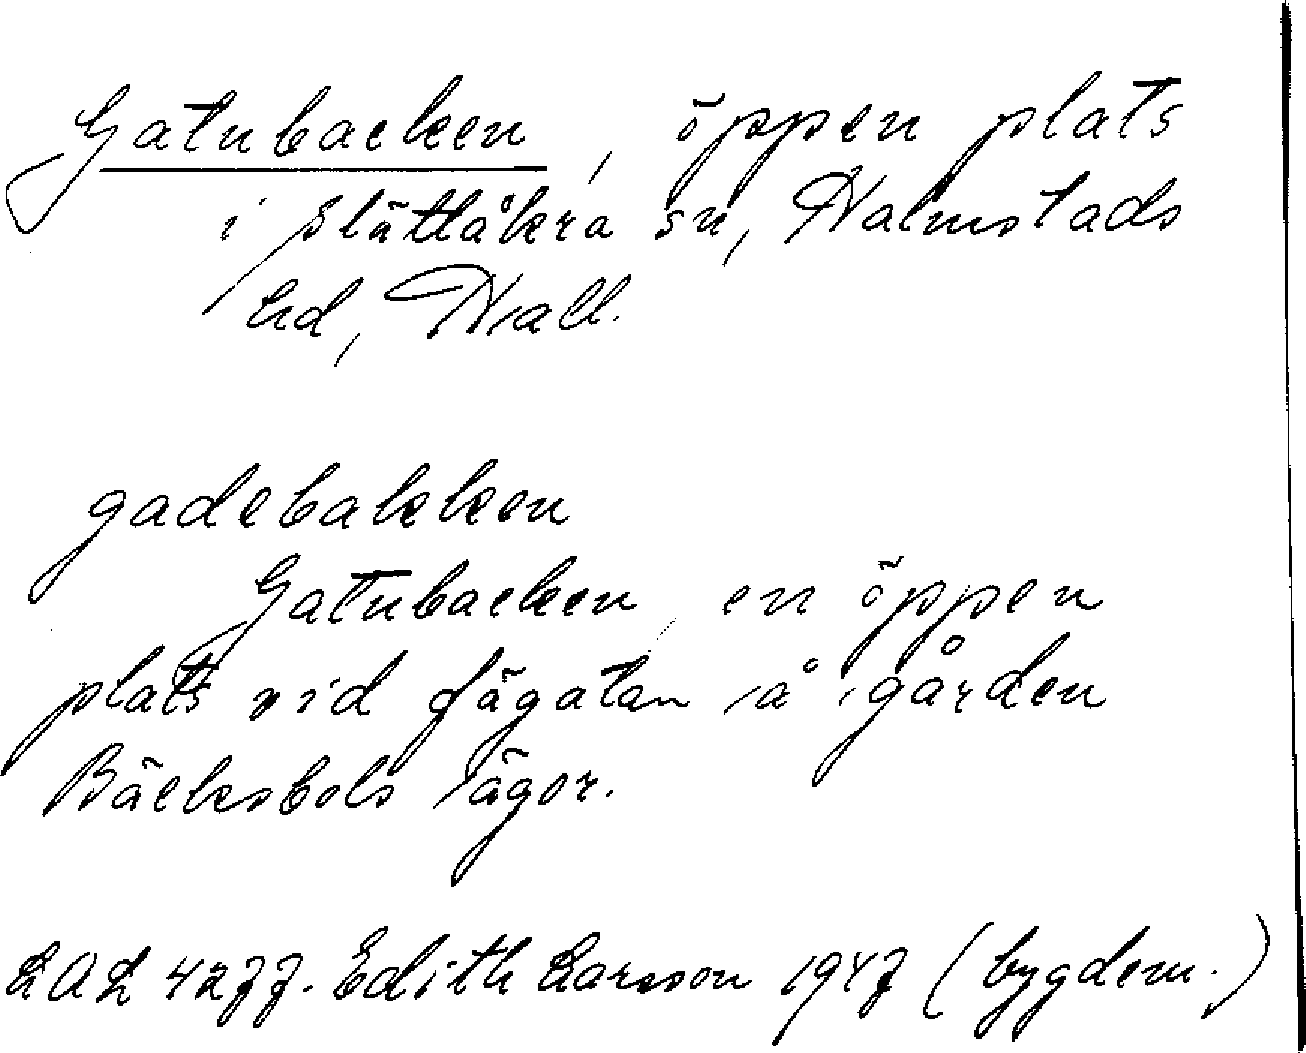 Gatubacken, öppen plats
i Slättåkra sn, Halmstads
hd, Hall.
gadebakken
Gatubacken, en öppen
plats vid fägatan å gården
Bäcksbols ägor.
LAL 4277. Edith Larsson 1947 (bygdem.)